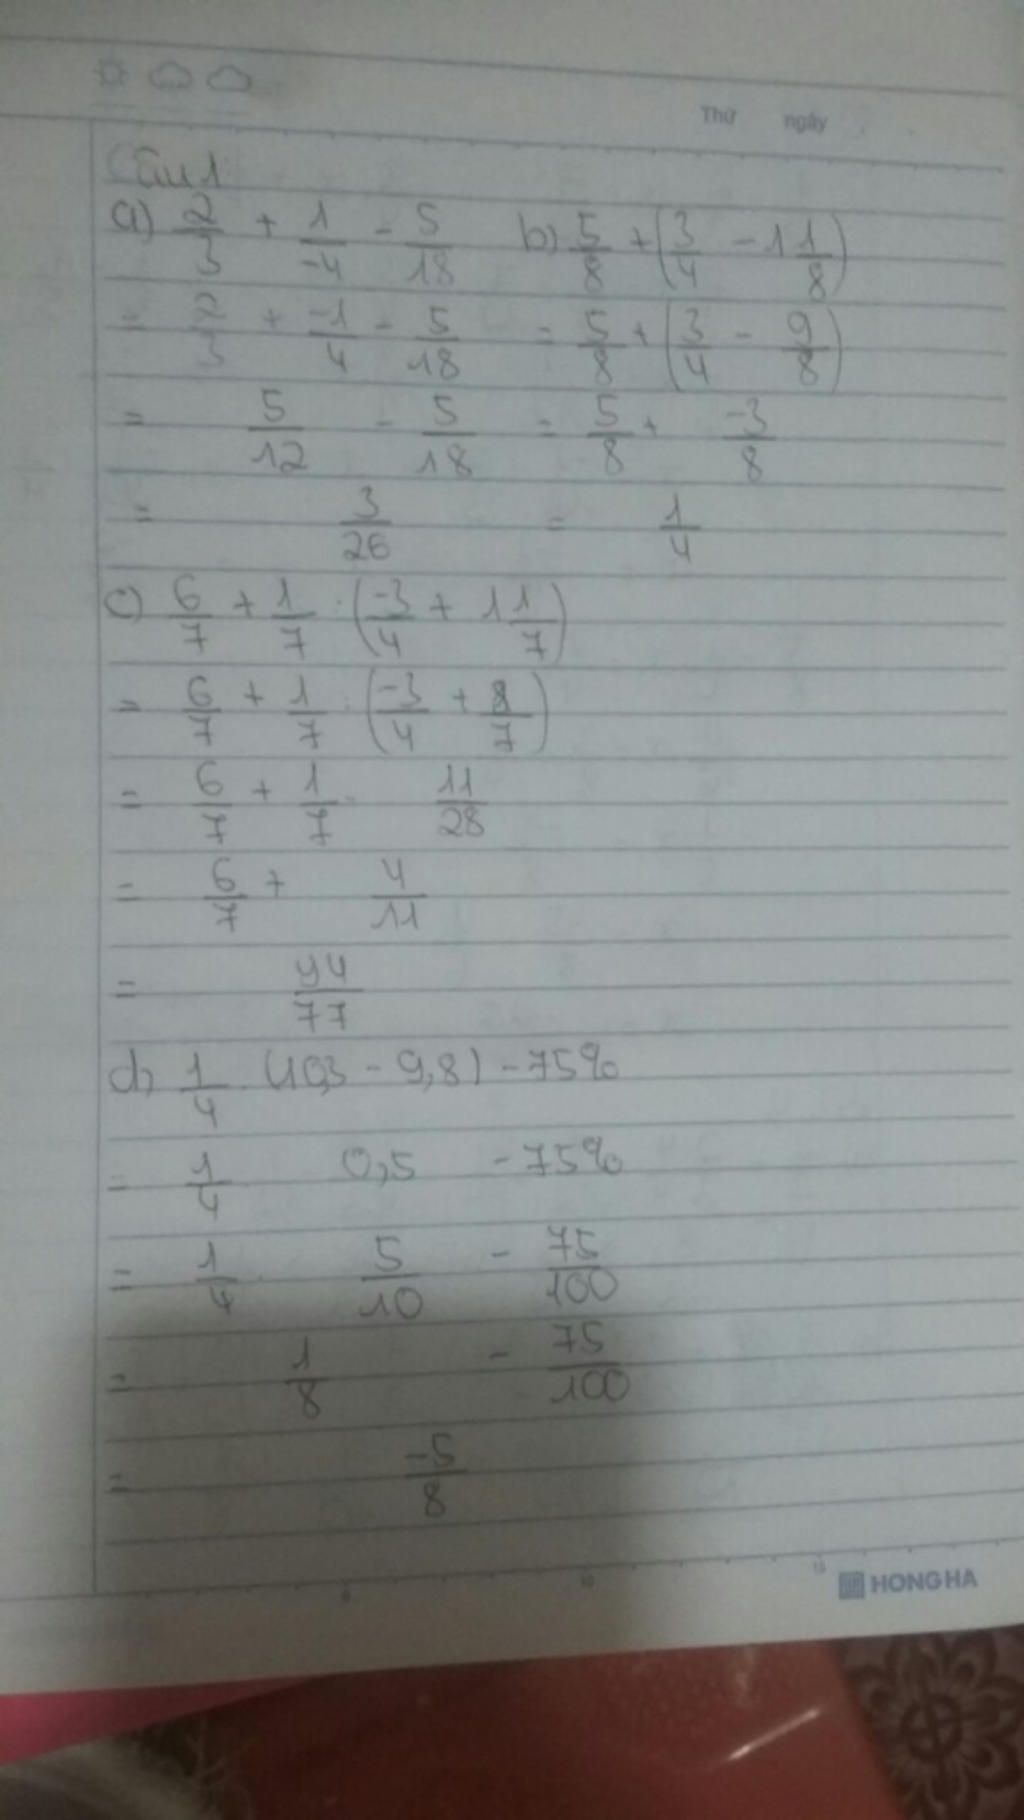 Thứ ngày
Câu 1:
a) 2/3 + 1/-4 - 5/18
= 2/3 + -1/4 - 5/18
= 5/12 - 5/18
= 3/26
b) 5/8 + (3/4 - 1 1/8)
= 5/8 + (3/4 - 9/8)
= 5/8 + -3/8
= 1/4
c) 6/7 + 1/7 : (-3/4 + 1 1/7)
= 6/7 + 1/7 : (-3/4 + 8/7)
= 6/7 + 1/7 : 11/28
= 6/7 + 4/11
= 94/77
d) 1/4 . (10,3 - 9,8) - 75%
= 1/4 . 0,5 - 75%
= 1/4 . 5/10 - 75/100
= 1/8 - 75/100
= -5/8
HONG HA